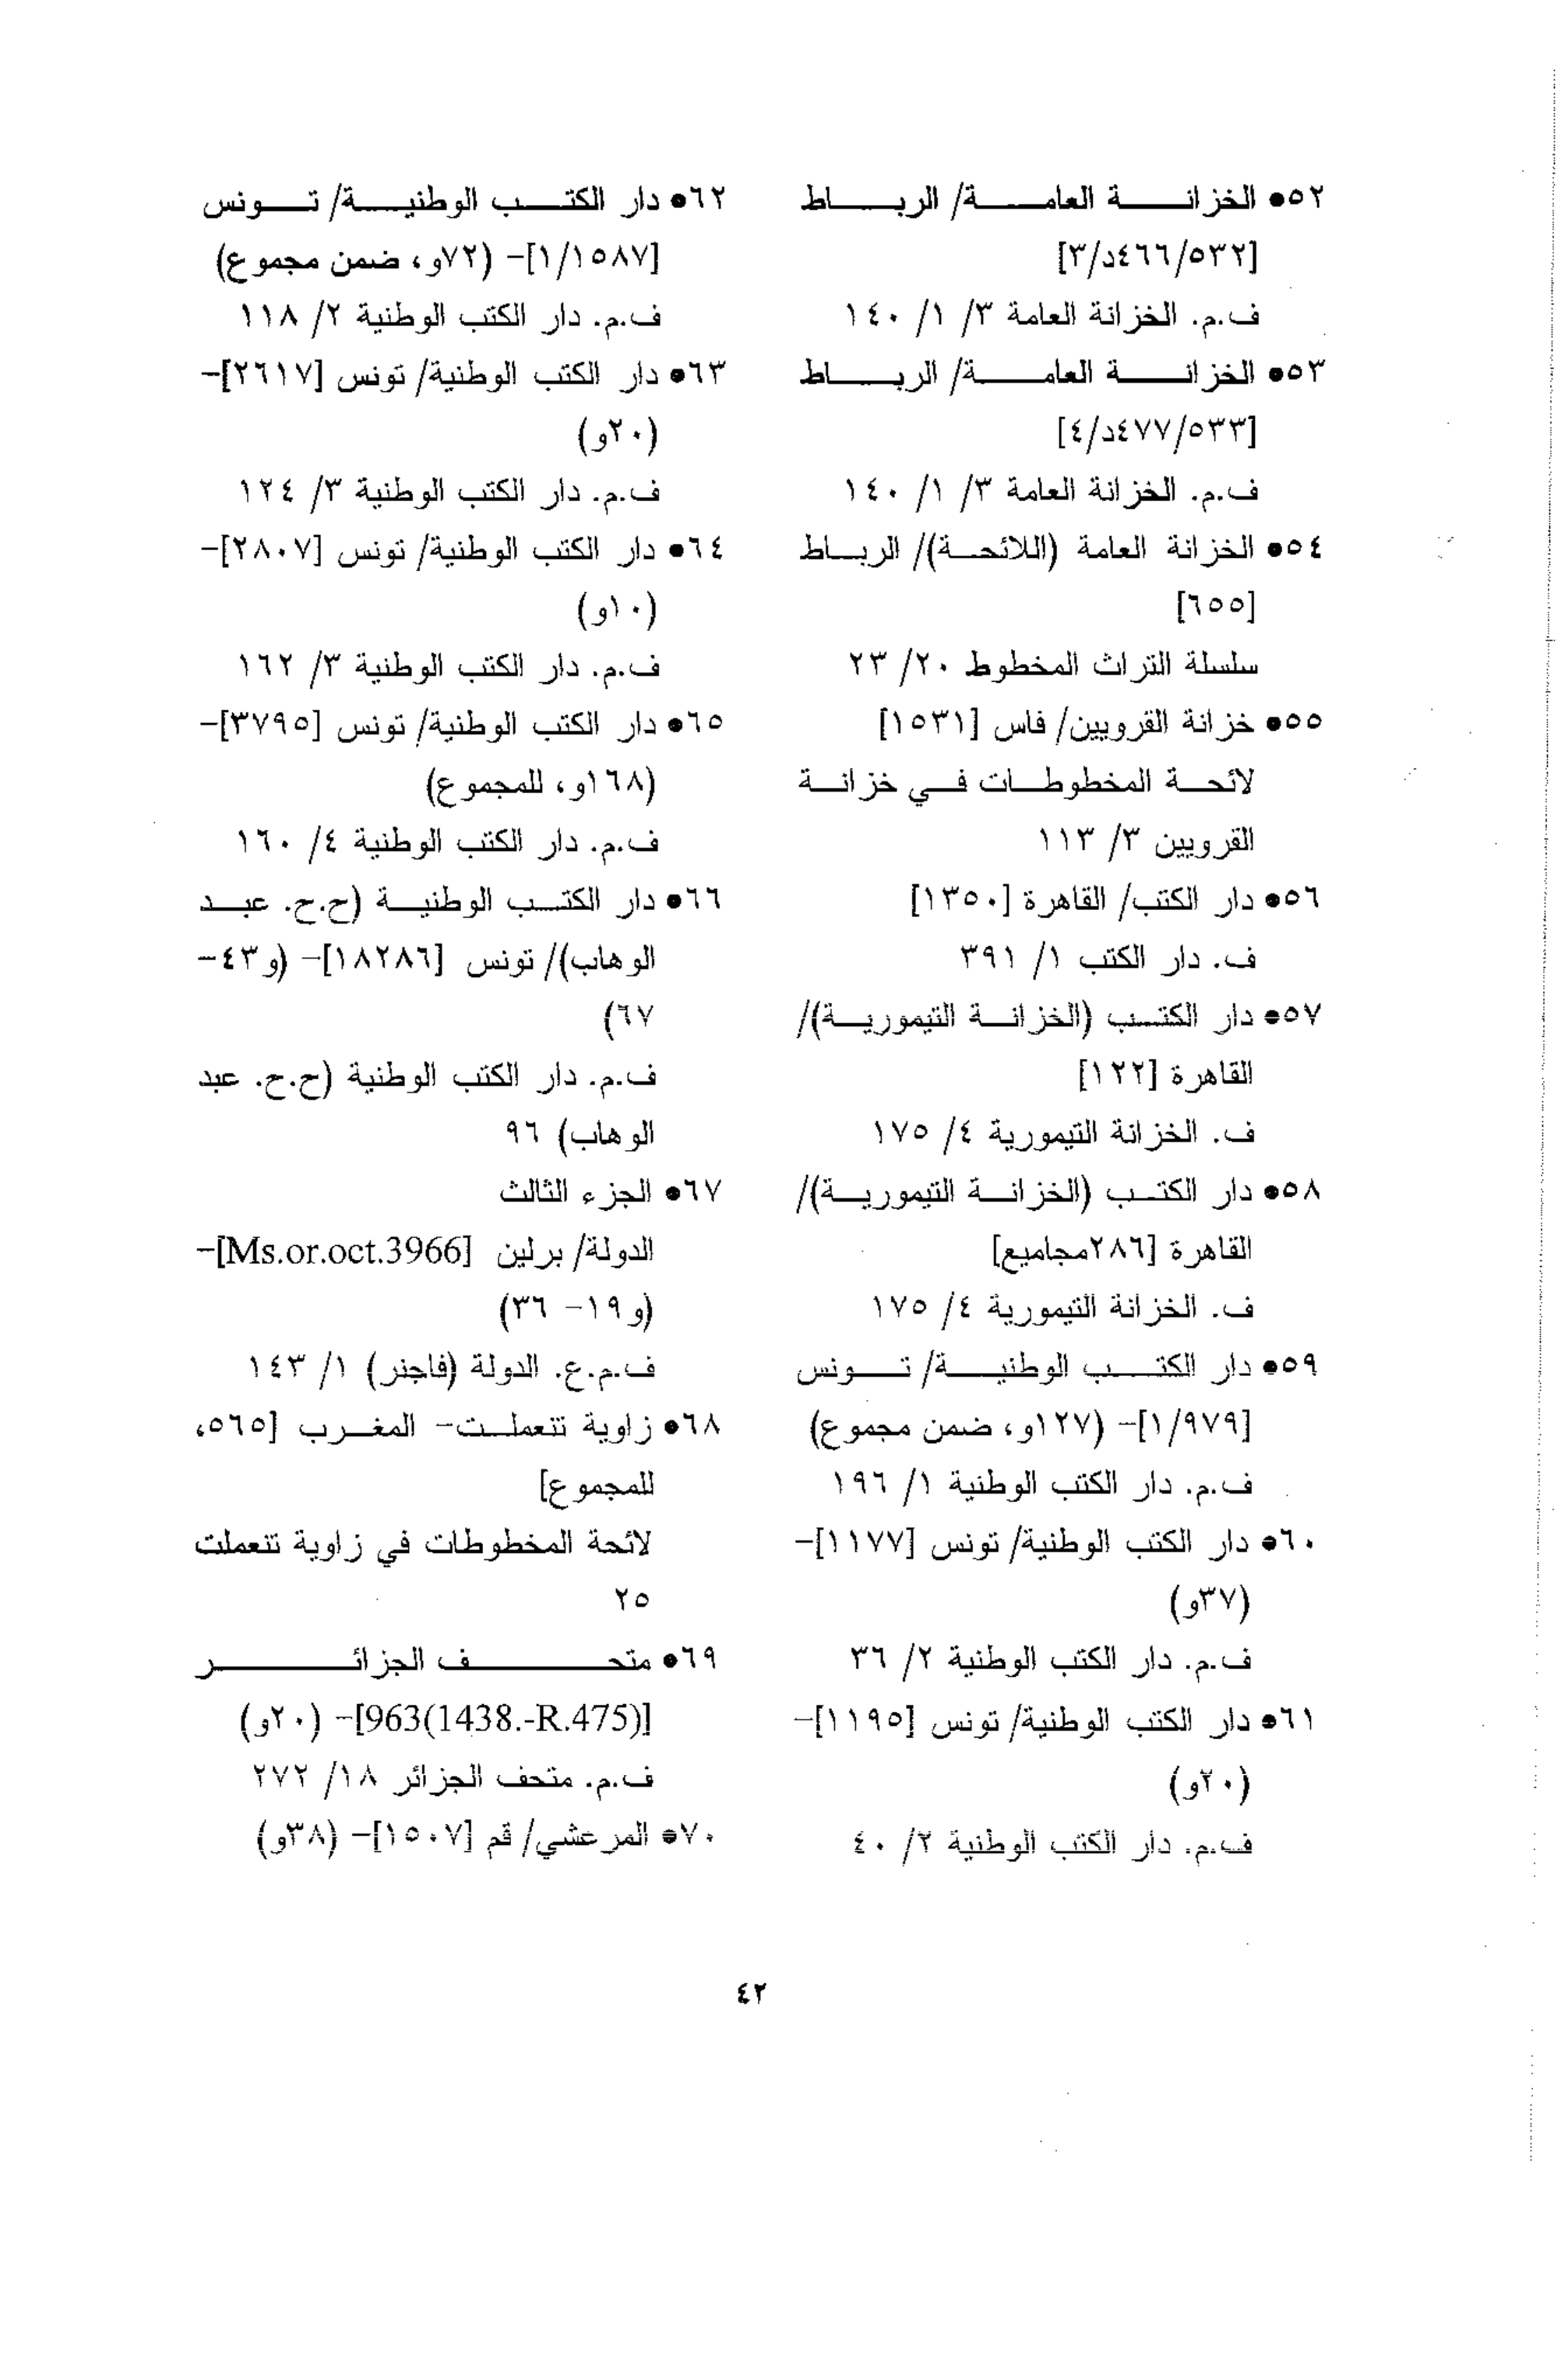 ٥٢● الخزانة العامة/ الرباط
[٥٣٢/٤٦٦د/٣]
ف.م. الخزانة العامة ٣/ ١/ ١٤٠
٥٣● الخزانة العامة/ الرباط
[٥٣٣/٤٧٧د/٤]
ف.م. الخزانة العامة ٣/ ١/ ١٤٠
٥٤● الخزانة العامة (اللائحة)/ الرباط
[٦٥٥]
سلسلة التراث المخطوط ٢٠/ ٢٣
٥٥● خزانة القرويين/ فاس [١٥٣١]
لائحة المخطوطات في خزانة
القرويين ٣/ ١١٣
٥٦● دار الكتب/ القاهرة [١٣٥٠]
ف. دار الكتب ١/ ٣٩١
٥٧● دار الكتب (الخزانة التيمورية)/
القاهرة [١٢٢]
ف. الخزانة التيمورية ٤/ ١٧٥
٥٨● دار الكتب (الخزانة التيمورية)/
القاهرة [٢٨٦مجاميع]
ف. الخزانة التيمورية ٤/ ١٧٥
٥٩● دار الكتب الوطنية/ تونس
[١/٩٧٩]- (١٢٧و، ضمن مجموع)
ف.م. دار الكتب الوطنية ١/ ١٩٦
٦٠● دار الكتب الوطنية/ تونس [١١٧٧]-
(٣٧و)
ف.م. دار الكتب الوطنية ٢/ ٣٦
٦١● دار الكتب الوطنية/ تونس [١١٩٥]-
(٢٠و)
ف.م. دار الكتب الوطنية ٢/ ٤٠
٦٢● دار الكتب الوطنية/ تونس
[١/١٥٨٧]- (٧٢و، ضمن مجموع)
ف.م. دار الكتب الوطنية ٢/ ١١٨
٦٣● دار الكتب الوطنية/ تونس [٢٦١٧]-
(٢٠و)
ف.م. دار الكتب الوطنية ٣/ ١٢٤
٦٤● دار الكتب الوطنية/ تونس [٢٨٠٧]-
(١٠و)
ف.م. دار الكتب الوطنية ٣/ ١٦٢
٦٥● دار الكتب الوطنية/ تونس [٣٧٩٥]-
(١٦٨و، للمجموع)
ف.م. دار الكتب الوطنية ٤/ ١٦٠
٦٦● دار الكتب الوطنية (ح.ح. عبد
الوهاب)/ تونس [١٨٢٨٦]- (و٤٣-
٦٧)
ف.م. دار الكتب الوطنية (ح.ح. عبد
الوهاب) ٩٦
٦٧● الجزء الثالث
الدولة/ برلين [Ms.or.oct.3966]-
(و١٩- ٣٦)
ف.م.ع. الدولة (فاجنر) ١/ ١٤٣
٦٨● زاوية تنعملت- المغرب [٥٦٥،
للمجموع]
لائحة المخطوطات في زاوية تنعملت
٢٥
٦٩● متحف الجزائر
[963(1438.-R.475)]- (٢٠و)
ف.م. متحف الجزائر ١٨/ ٢٧٢
٧٠● المرعشي/ قم [١٥٠٧]- (٣٨و)
٤٢